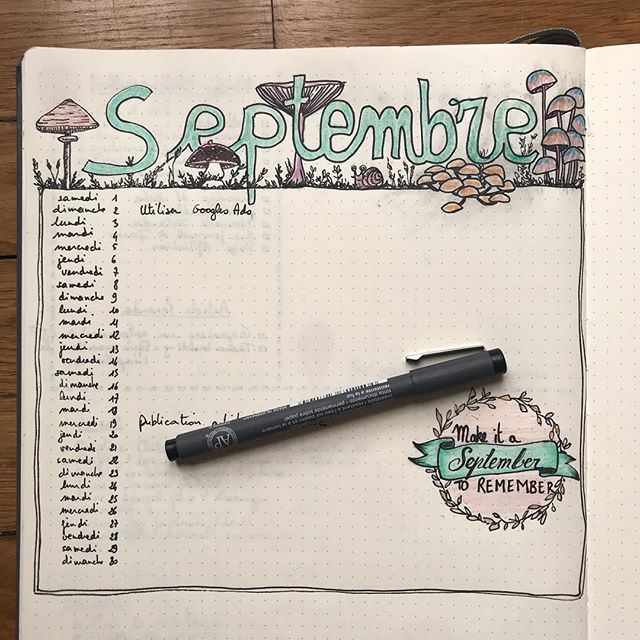 Septembre
samedi 1
dimanche 2 Utiliser Googles Ads
lundi 3
mardi 4
mercredi 5
jeudi 6
vendredi 7
samedi 8
dimanche 9
lundi 10
mardi 11
mercredi 12
jeudi 13
vendredi 14
samedi 15
dimanche 16
lundi 17
mardi 18
mercredi 19 publication
jeudi 20
vendredi 21
samedi 22
dimanche 23
lundi 24
mardi 25
mercredi 26
jeudi 27
vendredi 28
samedi 29
dimanche 30
Make it a
September
TO REMEMBER
AP